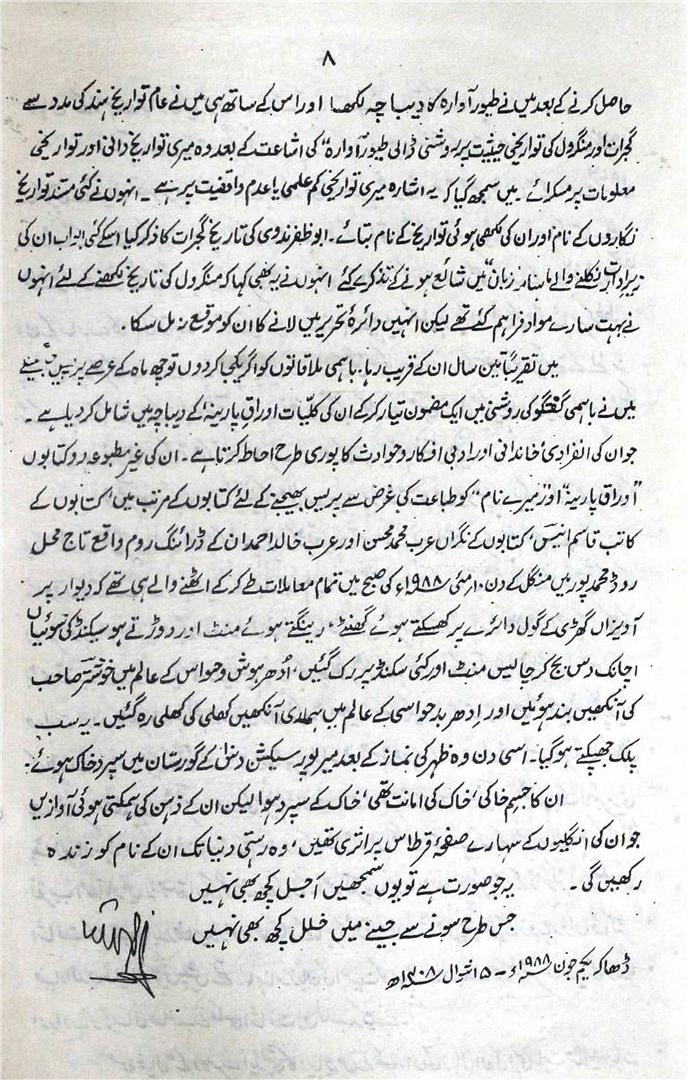 ۸
حاصل کرنے کے بعد میں نے طیور آوارہ کا دیباچہ لکھا اور اس کے ساتھ ہی میں نے عام تواریخ ہند کی مدد سے
گجرات اور منگرول کی تواریخی حیثیت پر روشنی ڈالی طیور آوارہ" کی اشاعت کے بعد وہ میری تواریخ دانی اور تواریخی
معلومات پر مسکرائے ۔ میں سمجھ گیا کہ یہ اشارہ میری تواریخی کم علمی یا عدم واقفیت پر ہے ۔ انہوں نے کئی مستند تواریخ
نگاروں کے نام اور ان کی لکھی ہوئی تواریخ کے نام بتائے ۔ ابو ظفر ندوی کی تاریخ گجرات کا ذکر کیا اسکے کئی ابواب ان کی
زیر ادارت نکلنے والے ماہنامہ زبان" میں شائع ہونے کے تذکرے کئے انہوں نے یہ بھی کہا کہ منگرول کی تاریخ لکھنے کے لئے انہوں
نے بہت سارے مواد فراہم کئے تھے لیکن انہیں دائرۂ تحریر میں لانے کا ان کو موقع نہ مل سکا ۔
میں تقریباً تین سال ان کے قریب رہا ۔ باہمی ملاقاتوں کو اگر یکجا کر دوں تو چھ ماہ کے عرصے پر
میں نے باہمی گفتگو کی روشنی میں ایک مضمون تیار کر کے ان کی کلیات اوراق پارینہ کے دیباچہ میں شامل کر دیا ہے ۔
جو ان کی انفرادی، خاندانی اور ادبی افکار و حوادث کا پوری طرح احاطہ کرتا ہے ۔ ان کی غیر مطبوعہ دو کتابوں
"اوراق پارینہ" اور "میرے نام" کو طباعت کی غرض سے پریس بھیجنے کے لئے کتابوں کے مرتب میں، کتابوں کے
کاتب قاسم انیس، کتابوں کے نگراں عرب محمد محسن اور عرب خالد احمد ان کے ڈرائنگ روم واقع تاج محل
روڈ محمد پور میں منگل کے دن ۱۰ مئی ۱۹۸۸ء کی صبح میں تمام معاملات طے کر کے اٹھنے والے ہی تھے کہ دیوار پر
آویزاں گھڑی کے گول دائرے پر کھسکتے ہوئے گھنٹے، رینگتے ہوئے منٹ اور دوڑتے ہو سیکنڈ کی سوئیاں
اچانک دس بج کر چالیس منٹ اور کئی سکنڈ پر رک گئیں، اُدھر ہوش و حواس کے عالم میں خوشتر صاحب
کی آنکھیں بند ہوئیں اور اِدھر بدحواسی کے عالم میں ہماری آنکھیں کھلی کی کھلی رہ گئیں ۔ یہ سب
پلک جھپکتے ہو گیا ۔ اسی دن وہ ظہر کی نماز کے بعد میرپور سیکشن دس کے گورستان میں سپرد خاک ہوئے ۔
ان کا جسم خاکی، خاک کی امانت تھی، خاک کے سپرد ہوا لیکن ان کے ذہن کی ہمکتی ہوئی آوازیں
جو ان کی انگلیوں کے سہارے صفحۂ قرطاس پر اتری تھیں، وہ رہتی دنیا تک ان کے نام کو زندہ
رکھیں گی ۔
یہ جو صورت ہے تو یوں سمجھیں اجل کچھ بھی نہیں
جس طرح سونے سے جینے میں خلل کچھ بھی نہیں
ڈھاکہ یکم جون ۱۹۸۸ء - ۱۵ شوال ۱۴۰۸ھ